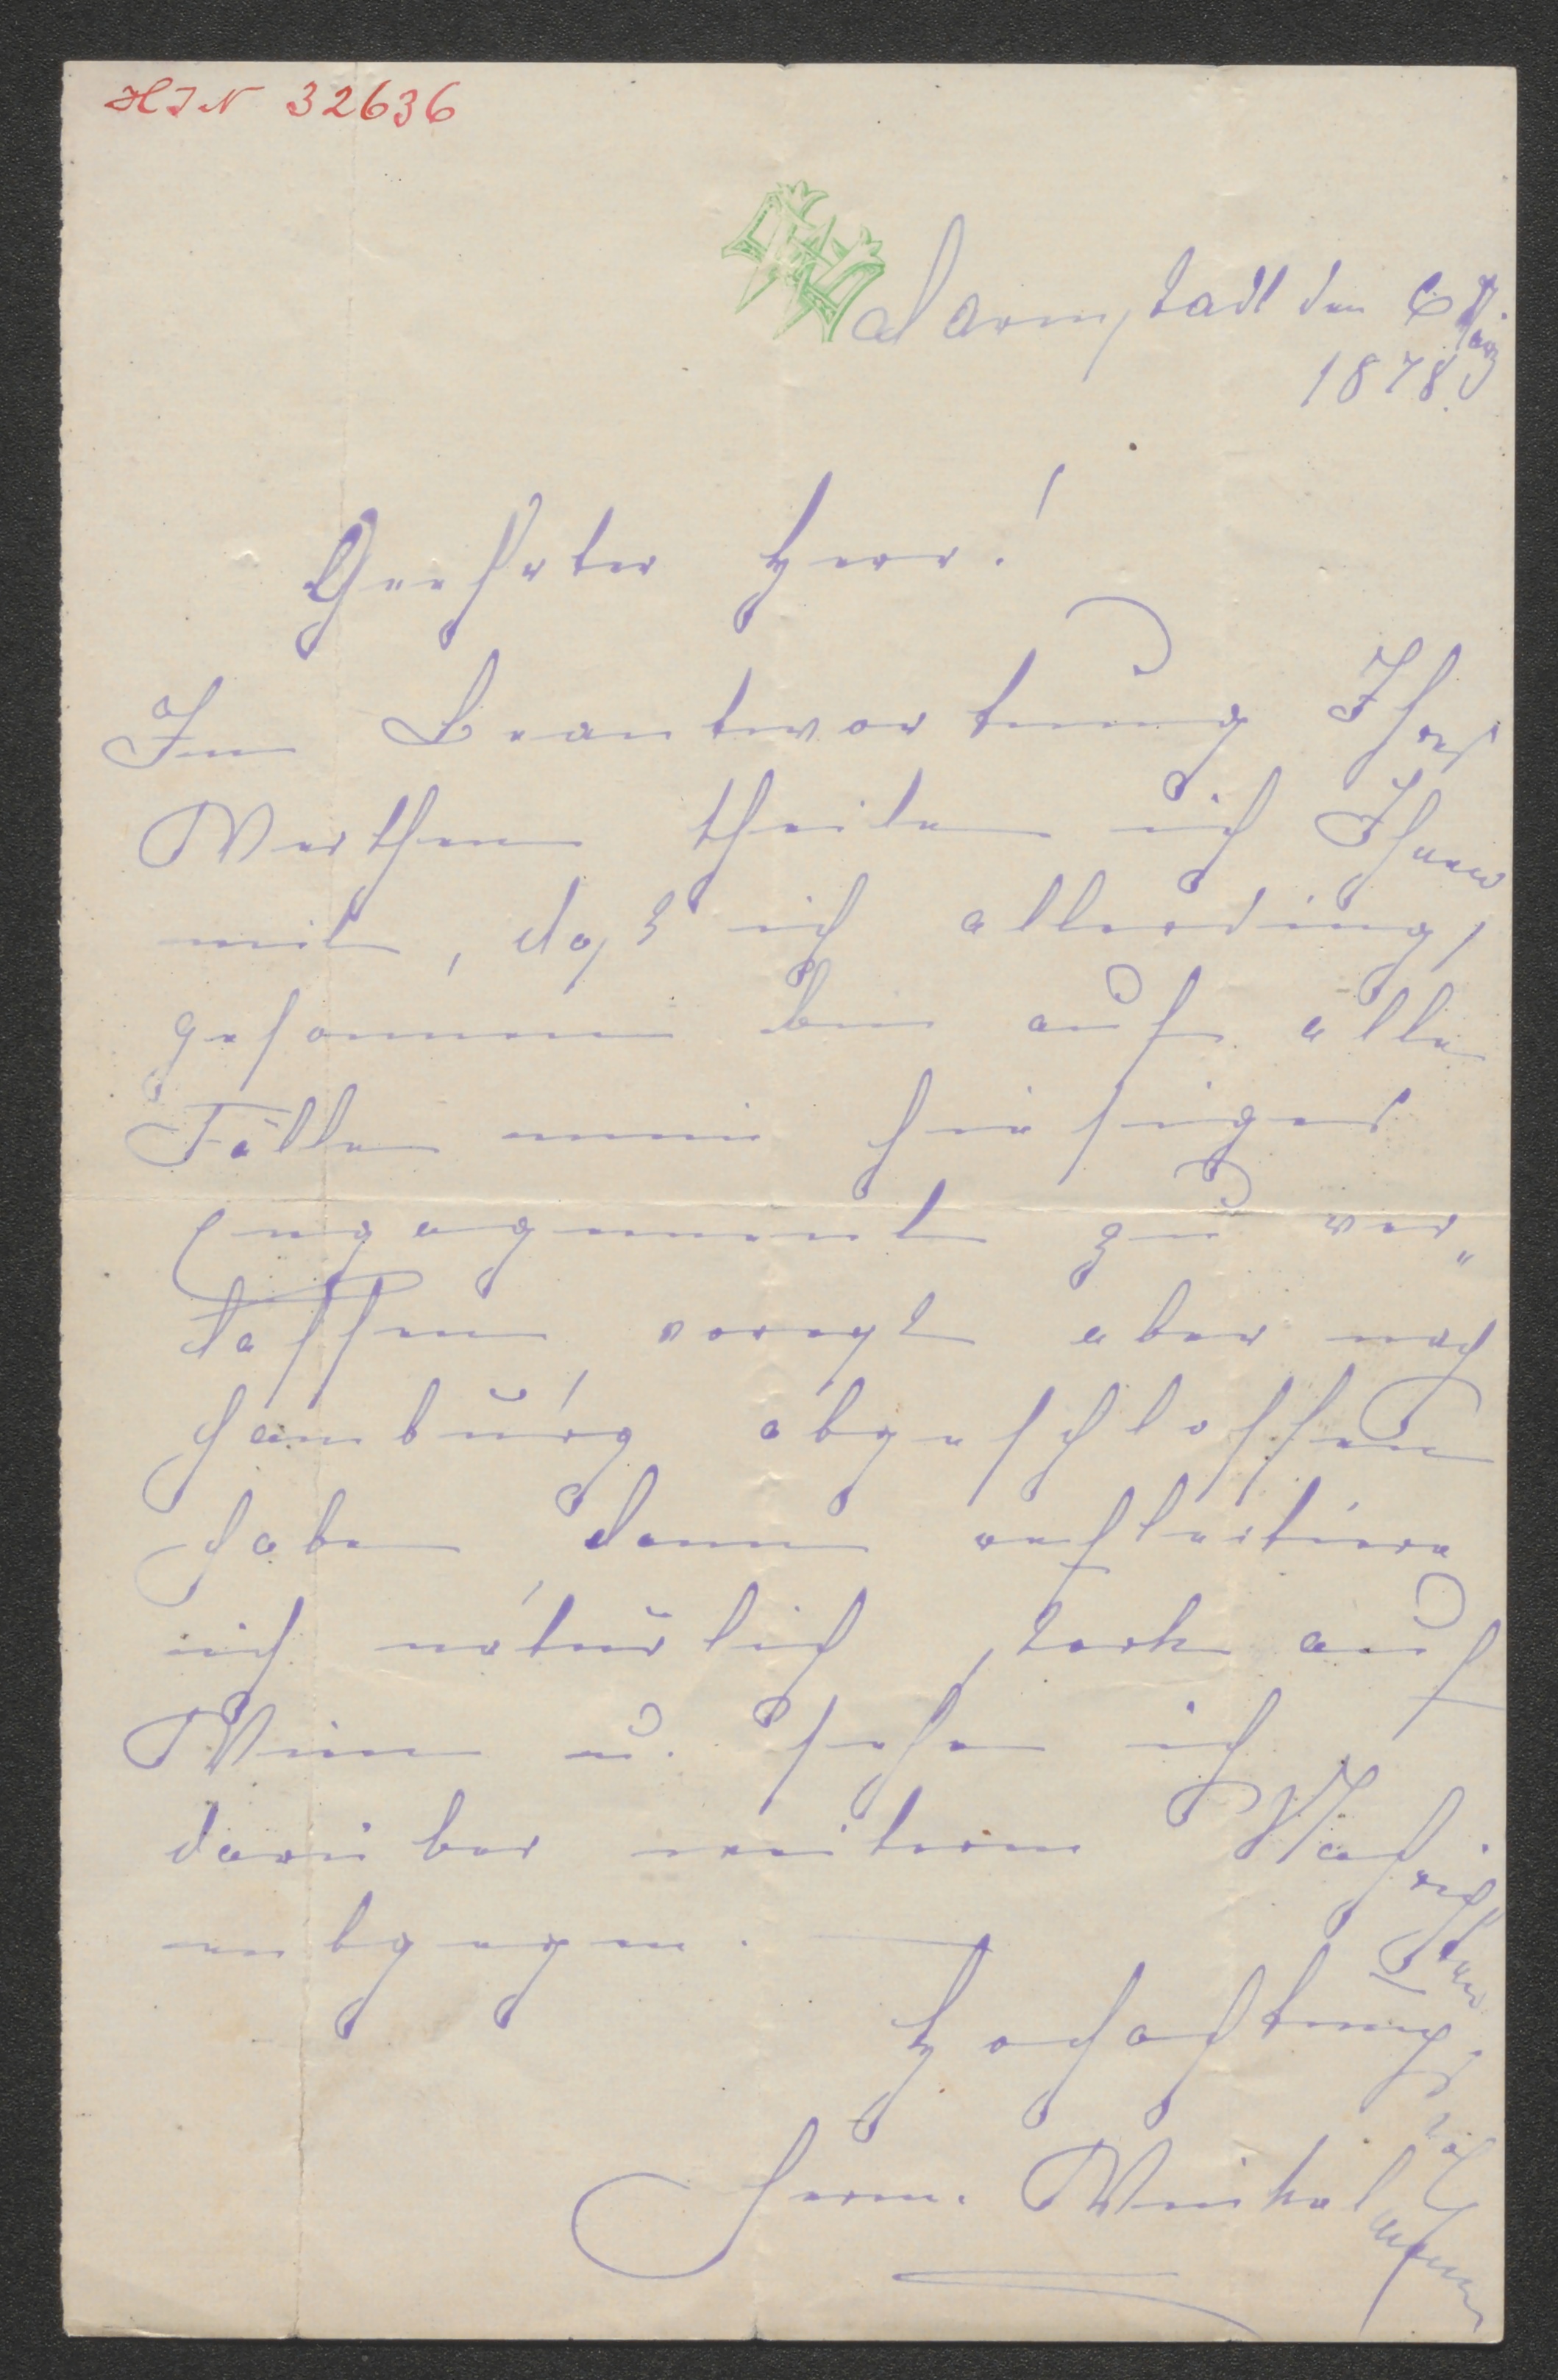 HIN 32636
Darmstadt den 6 März
1878.
Geehrter Herr!
In Beantwortung Ihres
Werthen theile ich Ihnen
mit, daß ich allerdings
gesonnen bin auf alle
Fälle mein hiesiges
Engagement zu ver„
lassen vorerst aber nach
Hamburg abgeschlossen
habe dann reflectiere
ich natürlich stark auf
Wien u. sehe ich
darüber weitern Nachrichten
entgegen.
Hochachtungsvoll
Herm. Winkelmann